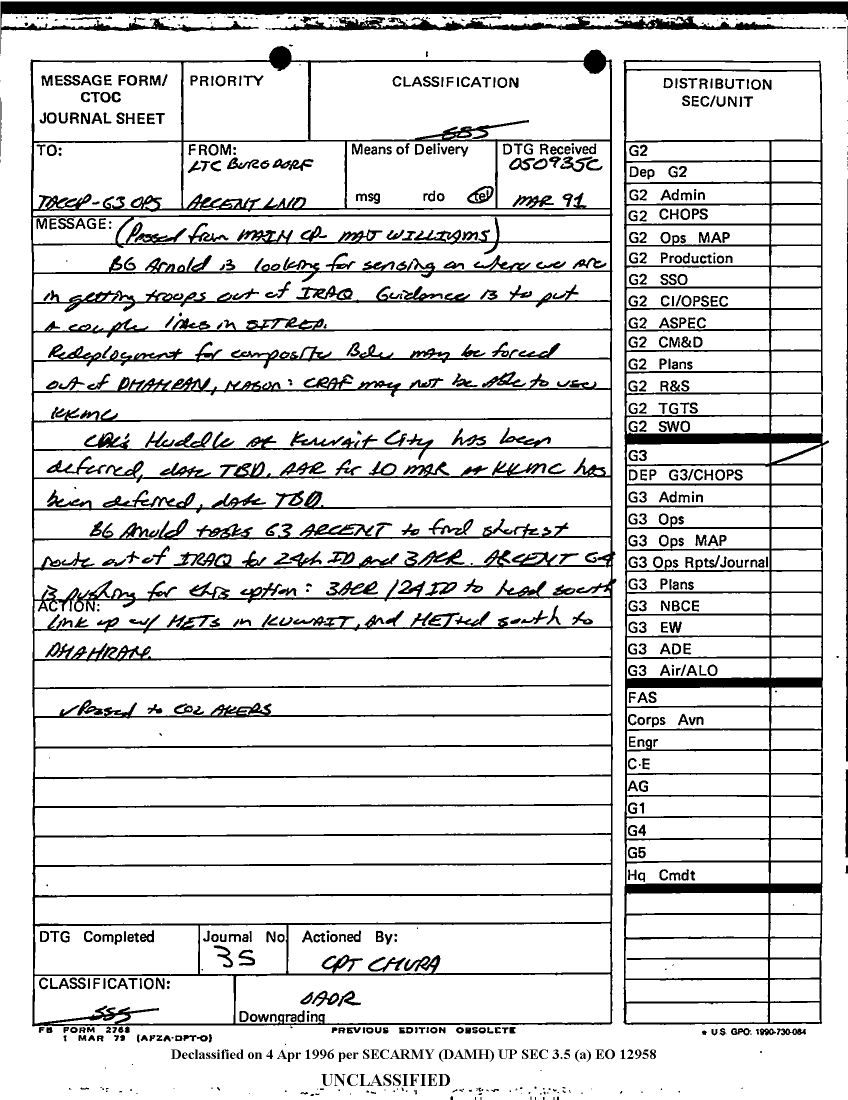 MESSAGE FORM/
CTOC
JOURNAL SHEET
PRIORITY
CLASSIFICATION
SSS
TO:
TACCP-G3 OPS
FROM:
LTC BURGDORF
ARCENT LNO
Means of Delivery
msg rdo tel
DTG Received
050935C
MAR 91
MESSAGE: (Passed from MAIN CP MAJ WILLIAMS)
BG Arnold is looking for sensing on where we are
in getting troops out of IRAQ. Guidance is to put
a couple lines in SITREP.
Redeployment for composite Bde may be forced
out of DHAHRAN, reason: CRAF may not be able to use
KKMC
CDR's Huddle at Kuwait City has been
deferred, date TBD. AAR for 10 MAR at KKMC has
been deferred, date TBD.
BG Arnold tasks G3 ARCENT to find shortest
route out of IRAQ for 24th ID and 3ACR. ARCENT G4
is pushing for this option: 3ACR/24ID to head south
ACTION:
link up w/ HETs in KUWAIT, and HETted south to
DHAHRAN.
✓Passed to COL AKERS
DTG Completed
Journal No.
35
Actioned By:
CPT CHURA
CLASSIFICATION:
SSS
OADR
Downgrading
FB FORM 2768
1 MAR 79 (AFZA-DPT-O)
PREVIOUS EDITION OBSOLETE
DISTRIBUTION
SEC/UNIT
G2
Dep G2
G2 Admin
G2 CHOPS
G2 Ops MAP
G2 Production
G2 SSO
G2 CI/OPSEC
G2 ASPEC
G2 CM&D
G2 Plans
G2 R&S
G2 TGTS
G2 SWO
G3
DEP G3/CHOPS
G3 Admin
G3 Ops
G3 Ops MAP
G3 Ops Rpts/Journal
G3 Plans
G3 NBCE
G3 EW
G3 ADE
G3 Air/ALO
FAS
Corps Avn
Engr
C-E
AG
G1
G4
G5
Hq Cmdt
* U.S. GPO: 1990-730-084
Declassified on 4 Apr 1996 per SECARMY (DAMH) UP SEC 3.5 (a) EO 12958
UNCLASSIFIED